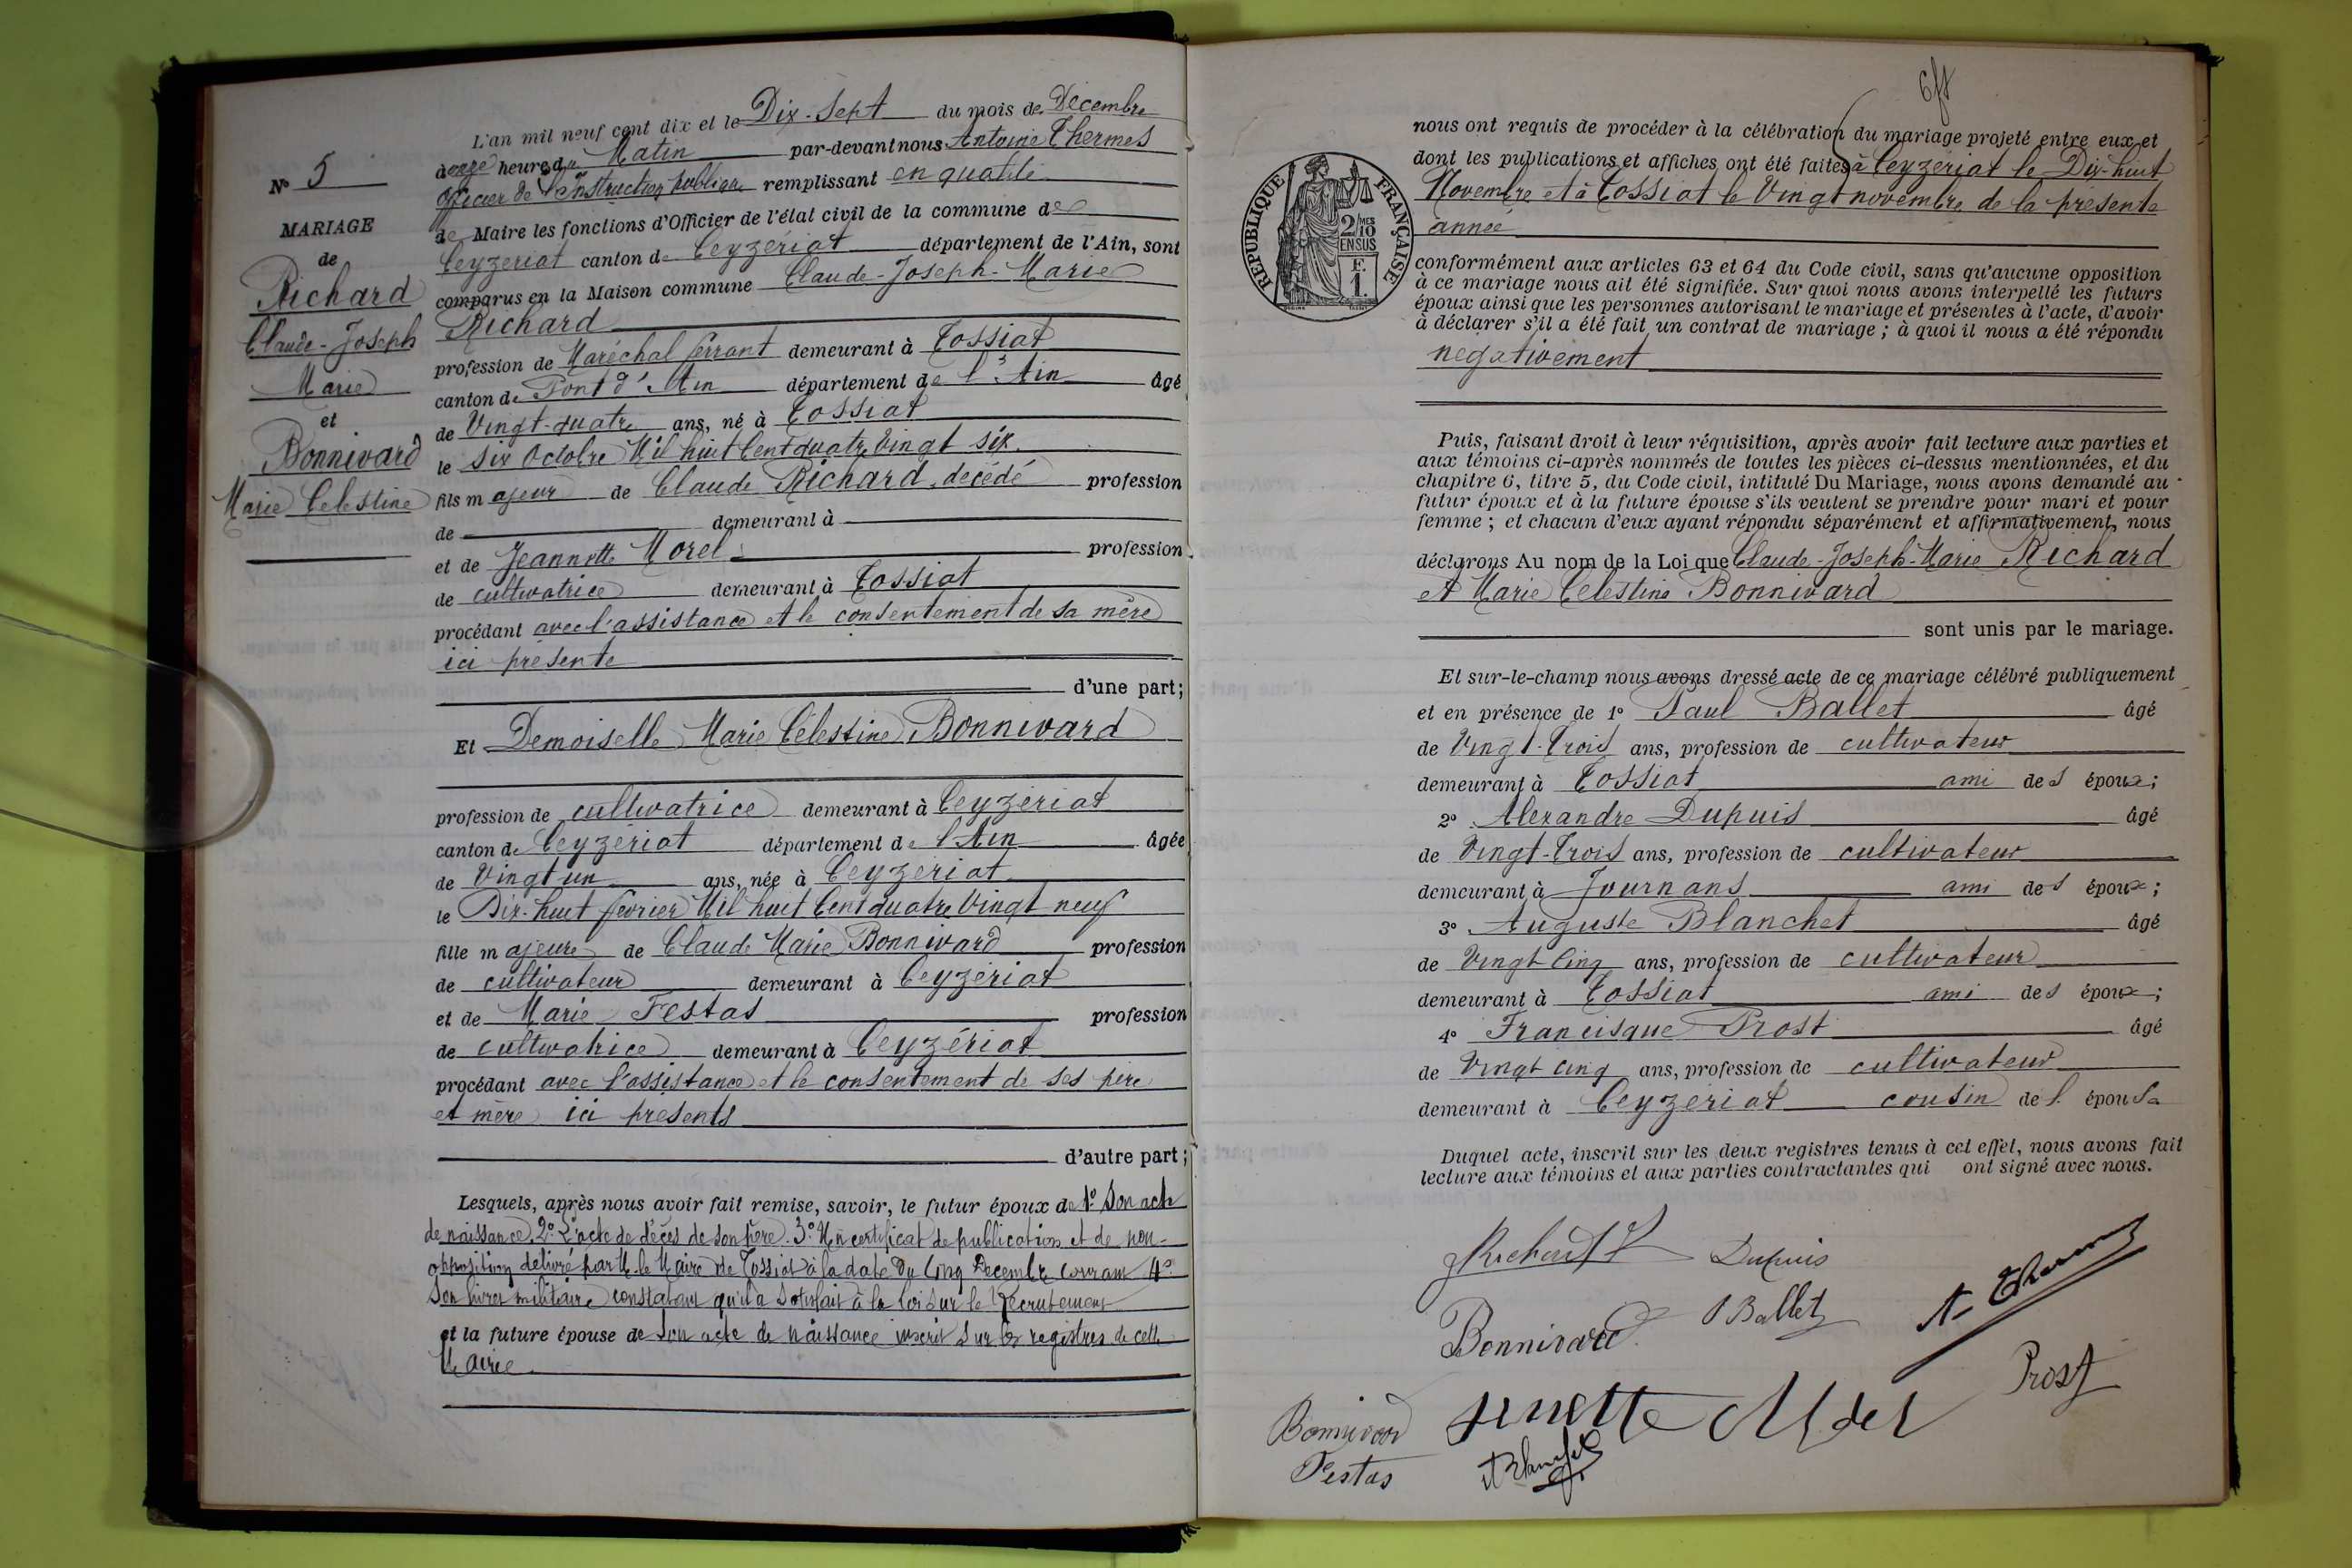 N° 5
MARIAGE
de
Richard
Claude-Joseph
Marie
et
Bonnivard
Marie Celestine
L'an mil neuf cent dix et le Dix-Sept du mois de Décembre
à onze heures du Matin par-devant nous Antoine Thermes
Officier de l'Instruction publique remplissant en qualité
de Maire les fonctions d'Officier de l'état civil de la commune de
Ceyzériat canton de Ceyzériat département de l'Ain, sont
comparus en la Maison commune Claude-Joseph-Marie
Richard
profession de Maréchal ferrant demeurant à Tossiat
canton de Pont d'Ain département de l'Ain âgé
de Vingt-quatre ans, né à Tossiat
le six Octobre Mil huit Cent quatre Vingt six.
fils majeur de Claude Richard, décédé profession
de demeurant à
et de Jeannette Morel profession
de cultivatrice demeurant à Tossiat
procédant avec l'assistance et le consentement de sa mère
ici présente
d'une part;
Et Demoiselle Marie Célestine Bonnivard
profession de cultivatrice demeurant à Ceyzériat
canton de Ceyzériat département de l'Ain âgée
de Vingt un ans, née à Ceyzériat
le Dix-huit février Mil huit Cent quatre Vingt neuf
fille majeure de Claude Marie Bonnivard profession
de cultivateur demeurant à Ceyzériat
et de Marie Festas profession
de cultivatrice demeurant à Ceyzériat
procédant avec l'assistance et le consentement de ses père
et mère ici présents
d'autre part;
Lesquels, après nous avoir fait remise, savoir, le futur époux de 1° Son acte
de naissance. 2° L'acte de décès de son père. 3° Un certificat de publication et de non-
opposition délivré par M. le Maire de Tossiat à la date du Cinq Decembre courant 4°
Son livret militaire constatant qu'il a satisfait à la loi sur le Recrutement
et la future épouse de Son acte de naissance inscrit sur les registres de cette
Mairie.
nous ont requis de procéder à la célébration du mariage projeté entre eux et
dont les publications et affiches ont été faites à Ceyzériat le Dix-huit
Novembre et à Tossiat le Vingt novembre de la présente
année
RÉPUBLIQUE FRANÇAISE
2/10 MES
EN SUS
F.
1.
conformément aux articles 63 et 64 du Code civil, sans qu'aucune opposition
à ce mariage nous ait été signifiée. Sur quoi nous avons interpellé les futurs
époux ainsi que les personnes autorisant le mariage et présentes à l'acte, d'avoir
à déclarer s'il a été fait un contrat de mariage; à quoi il nous a été répondu
négativement
Puis, faisant droit à leur réquisition, après avoir fait lecture aux parties et
aux témoins ci-après nommés de toutes les pièces ci-dessus mentionnées, et du
chapitre 6, titre 5, du Code civil, intitulé Du Mariage, nous avons demandé au
futur époux et à la future épouse s'ils veulent se prendre pour mari et pour
femme; et chacun d'eux ayant répondu séparément et affirmativement, nous
déclarons Au nom de la Loi que Claude-Joseph-Marie Richard
et Marie Celestine Bonnivard
sont unis par le mariage.
Et sur-le-champ nous avons dressé acte de ce mariage célébré publiquement
et en présence de 1° Paul Ballet âgé
de Vingt-Trois ans, profession de cultivateur
demeurant à Tossiat ami des époux;
2° Alexandre Dupuis âgé
de Vingt-Trois ans, profession de cultivateur
demeurant à Journans ami des époux;
3° Auguste Blanchet âgé
de Vingt Cinq ans, profession de cultivateur
demeurant à Tossiat ami des époux;
4° Francisque Prost âgé
de Vingt cinq ans, profession de cultivateur
demeurant à Ceyzériat cousin de l'épouse
Duquel acte, inscrit sur les deux registres tenus à cet effet, nous avons fait
lecture aux témoins et aux parties contractantes qui ont signé avec nous.
Richard Dupuis
Bonnivard P Ballet A. Thermes
Bonnivard Morel Prost
Festas A Blanchet